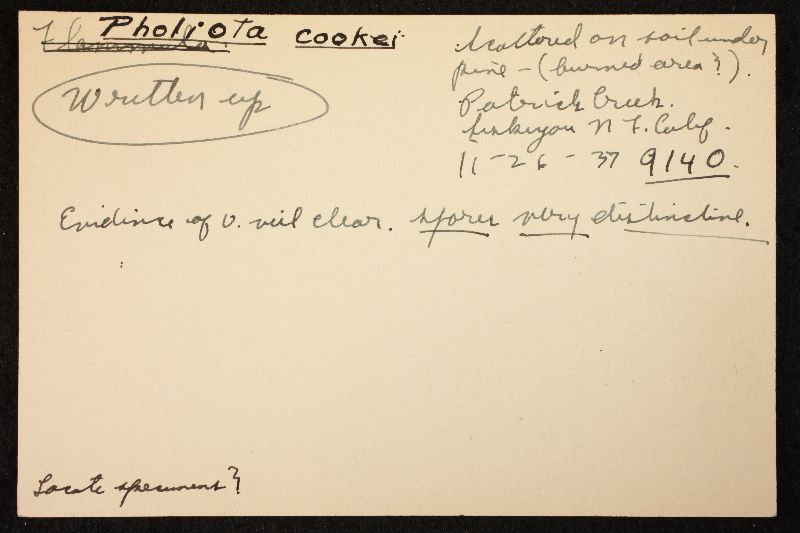 Flammula. Pholiota cookei
Scattered on soil under
pine - (burned area?).
Written up
Patrick Creek.
Siskiyou N F. Calif.
11-26-37 9140.
Evidence of v. veil clear. spores very distinctive.
Locate specimens?